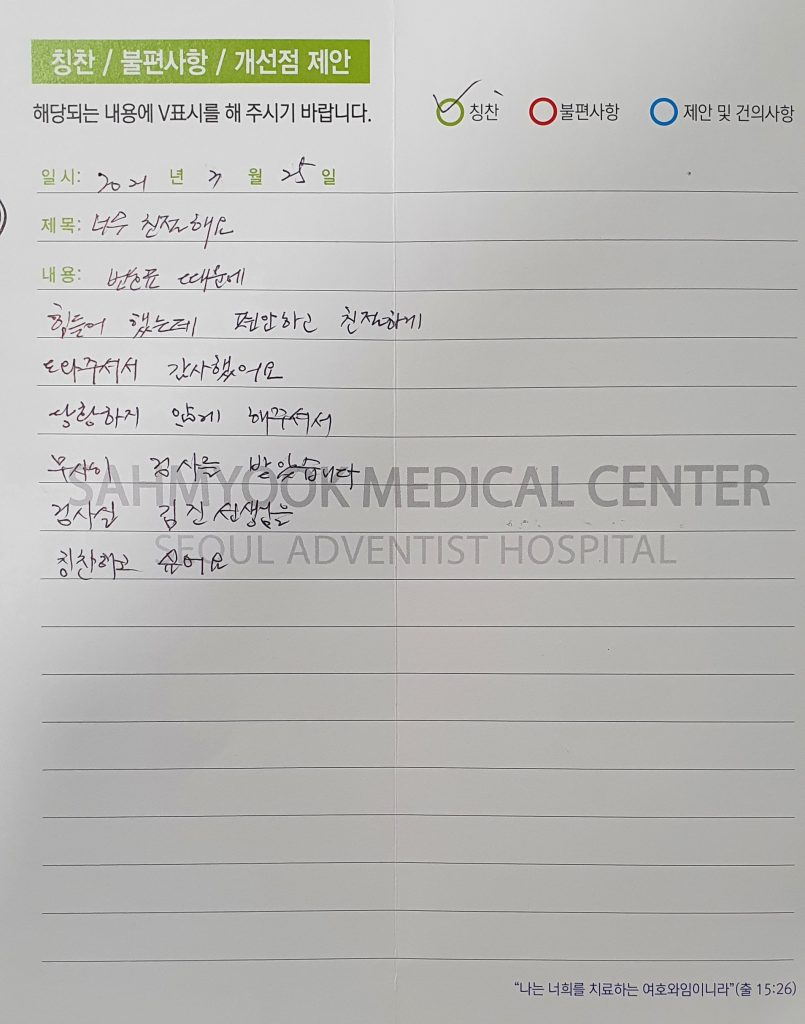 칭찬 / 불편사항 / 개선점 제안
해당되는 내용에 V표시를 해 주시기 바랍니다.
칭찬 불편사항 제안 및 건의사항
일시: 2021 년 7 월 25 일
제목: 너무 친절해요
내용: 번호표 때문에
힘들어 했는데 편안하고 친절하게
도와주셔서 감사했어요
당황하지 않게 해주셔서
무사이 검사를 받았습니다
검사실 김진 선생님을
칭찬하고 싶어요
SAHMYOOK MEDICAL CENTER
SEOUL ADVENTIST HOSPITAL
“나는 너희를 치료하는 여호와임이니라”(출 15:26)